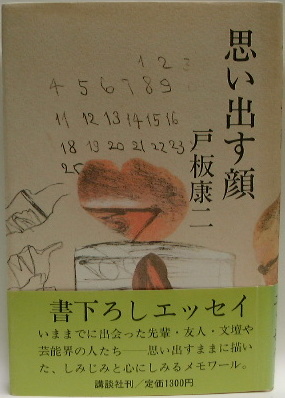 思い出す顔
戸板康二
1 2
4 5 6 7 8 9
11 12 13 14 15 16
18 19 20 21 22 23
25
書下ろしエッセイ
いままでに出会った先輩・友人・文壇や
芸能界の人たち——思い出すままに描い
た、しみじみと心にしみるメモワール。
講談社刊／定価1300円